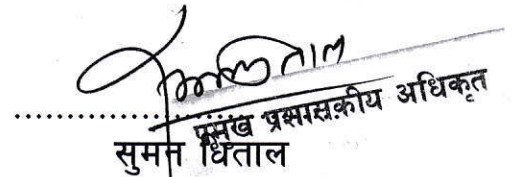 प्रमुख प्रशासकीय अधिकृत
सुमन धिताल